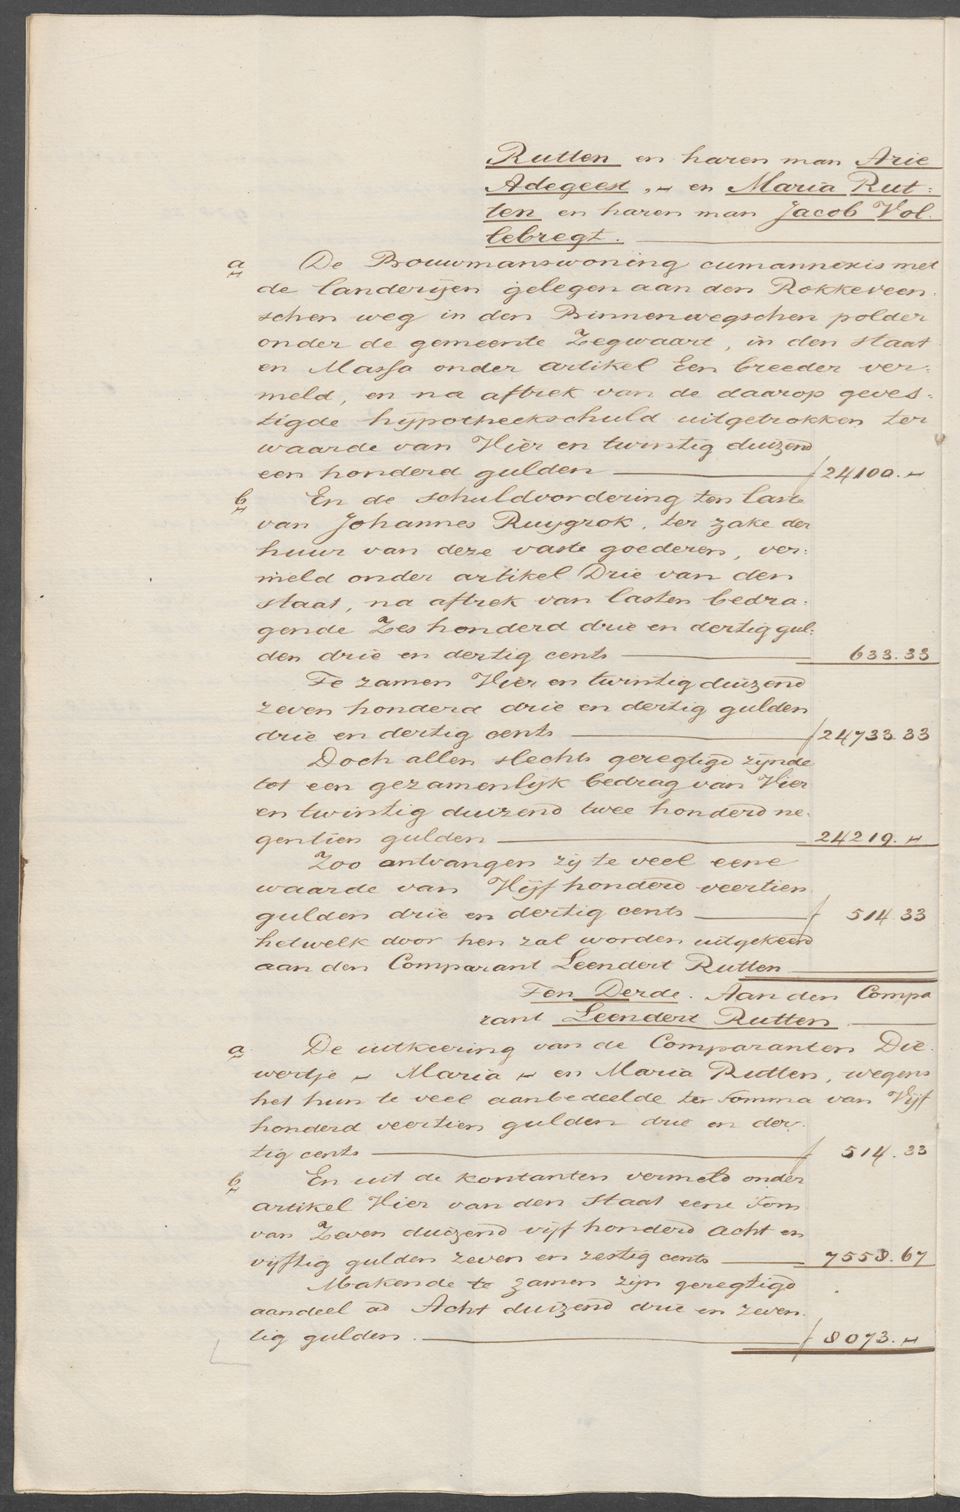 Rutten en haren man Arie
Adegeest ,~ en Maria Rut-
ten en haren man Jacob Vol-
lebregt.
a De Bouwmanswoning cumannexis met
de landerijen gelegen aan den Rokkeveen-
schen weg in den Binnenwegschen polder
onder de gemeente Zegwaart, in den staat
en Massa onder artikel Een breeder ver-
meld, en na aftrek van de daarop geves-
tigde hypotheekschuld uitgetrokken ter
waarde van Vier en twintig duizend
een honderd gulden f 24100.~
b En de schuldvordering ten laste
van Johannes Ruygrok, ter zake der
huur van deze vaste goederen, ver-
meld onder artikel Drie van den
staat, na aftrek van lasten bedra-
gende Zes honderd drie en dertig gul-
den drie en dertig cents 633.33
Te zamen Vier en twintig duizend
zeven honderd drie en dertig gulden
drie en dertig cents f 24733.33
Doch allen slechts geregtigd zijnde
tot een gezamenlijk bedrag van Vier
en twintig duizend twee honderd ne-
gentien gulden 24219.~
Zoo ontvangen zij te veel eene
waarde van Vijf honderd veertien
gulden drie en dertig cents f 514.33
hetwelk door hen zal worden uitgekeerd
aan den Comparant Leendert Rutten
Ten Derde. Aan den Compa
rant Leendert Rutten
a De uitkeering van de Comparanten Die-
wertje ~ Maria ~ en Maria Rutten, wegens
het hun te veel aanbedeelde ter somma van Vijf
honderd veertien gulden drie en der-
tig cents f 514.33
b En uit de kontanten vermeld onder
artikel Vier van den staat eene som
van Zeven duizend vijf honderd acht en
vijftig gulden zeven en zestig cents 7558.67
Makende te zamen zijn geregtigd
aandeel ad Acht duizend drie en zeven-
tig gulden. f 8073.~